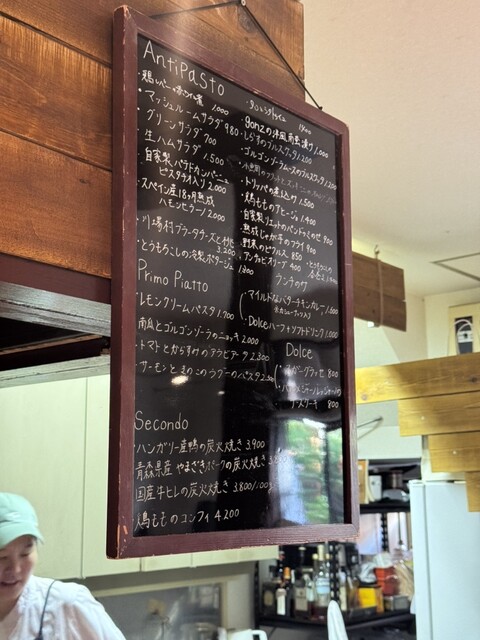 AntiPasto
・マッシュルームサラダ 980
・グリーンサラダ 700
・生ハムサラダ 1.500
自家製パテドカンパーニュ
ピスタチオ入り 2.000
・スペイン産18ヶ月熟成
ハモンセラーノ 2.000
・川場村ブラータチーズと桃
3.200
・とうもろこしの冷製ポタージュ 1300
1400
1,000
・しらすのブルスケッタ 1.200
・ゴルゴンゾーラムースのブルスケッタ 1.200
・トリッパの煮込み 1.500
・鶏もものアヒージョ 1.400
・自家製リエットのパンドミのせ 900
・熟成じゃが芋のフライ 900
・野菜のピクルス 850
・アンチョビオリーブ 400
ランチのみ
マイルドなバターチキンカレー 1.000
・Dolceハーフ+ソフトドリンク 1.000
Primo Piatto
・レモンクリームパスタ 1.900
・南瓜とゴルゴンゾーラのニョッキ 2.000
・トマトとからすみのアラビアータ 2.300
・サーモンときのこのラグーのパスタ
Dolce
800
800
Secondo
・ハンガリー産鴨の炭火焼き 3.900
・青森県産 やまざきポークの炭火焼き
・国産牛ヒレの炭火焼き 3.800/100g
・鶏もものコンフィ 4.200